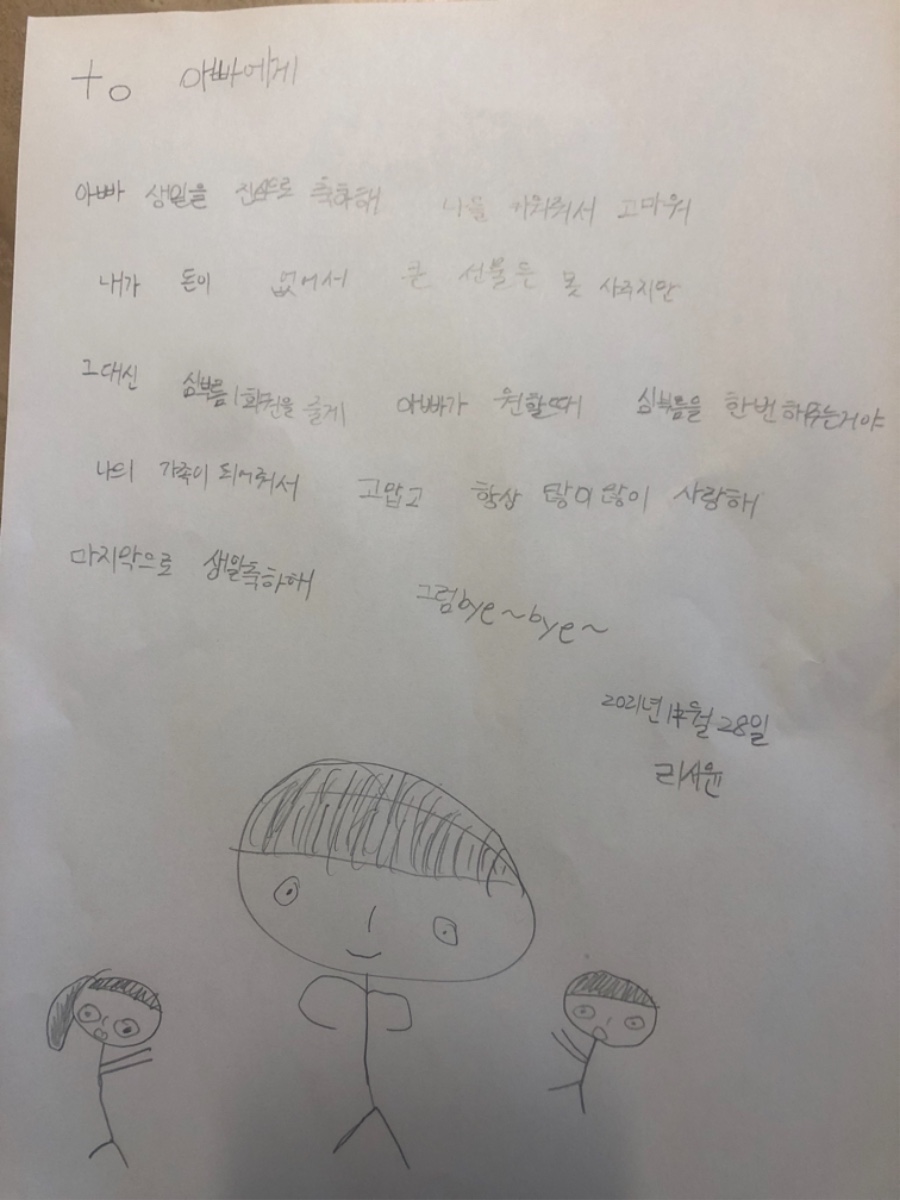 to 아빠에게
아빠 생일을 진심으로 축하해 나를 키워줘서 고마워
내가 돈이 없어서 큰 선물은 못 사주지만
그대신 심부름1회권을 줄게 아빠가 원할때 심부름을 한번 해주는거야
나의 가족이 되어줘서 고맙고 항상 많이 많이 사랑해
마지막으로 생일축하해 그럼bye~bye~
2021년 28일